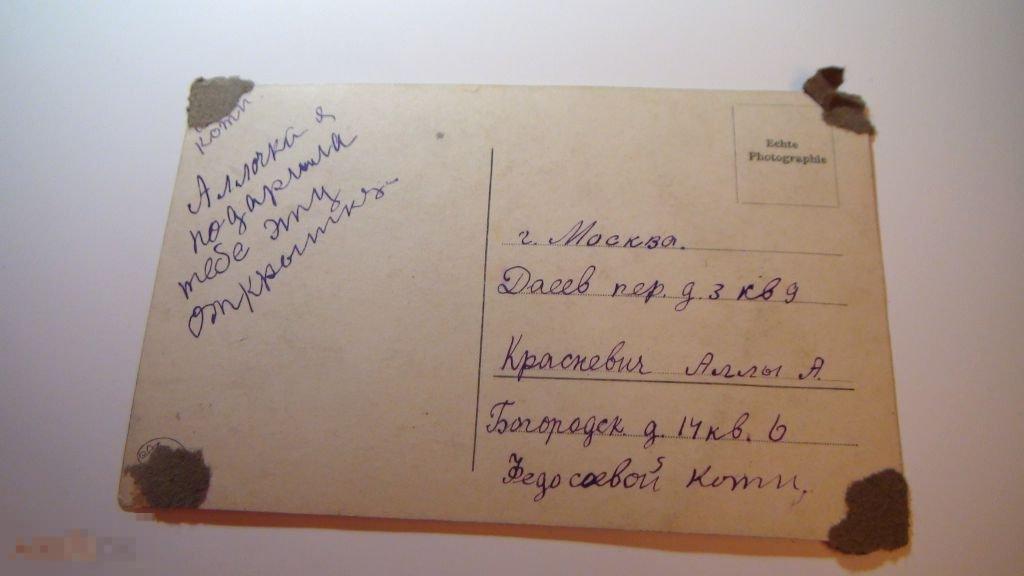 Коти
Аллочка я
подарила
тебе эту
открытку
Echte
Photographie
г. Москва.
Даев пер. д. 3 кв 9
Красневич Аллы А.
Богородск. д. 14 кв. 6
Федосеевой Коти,